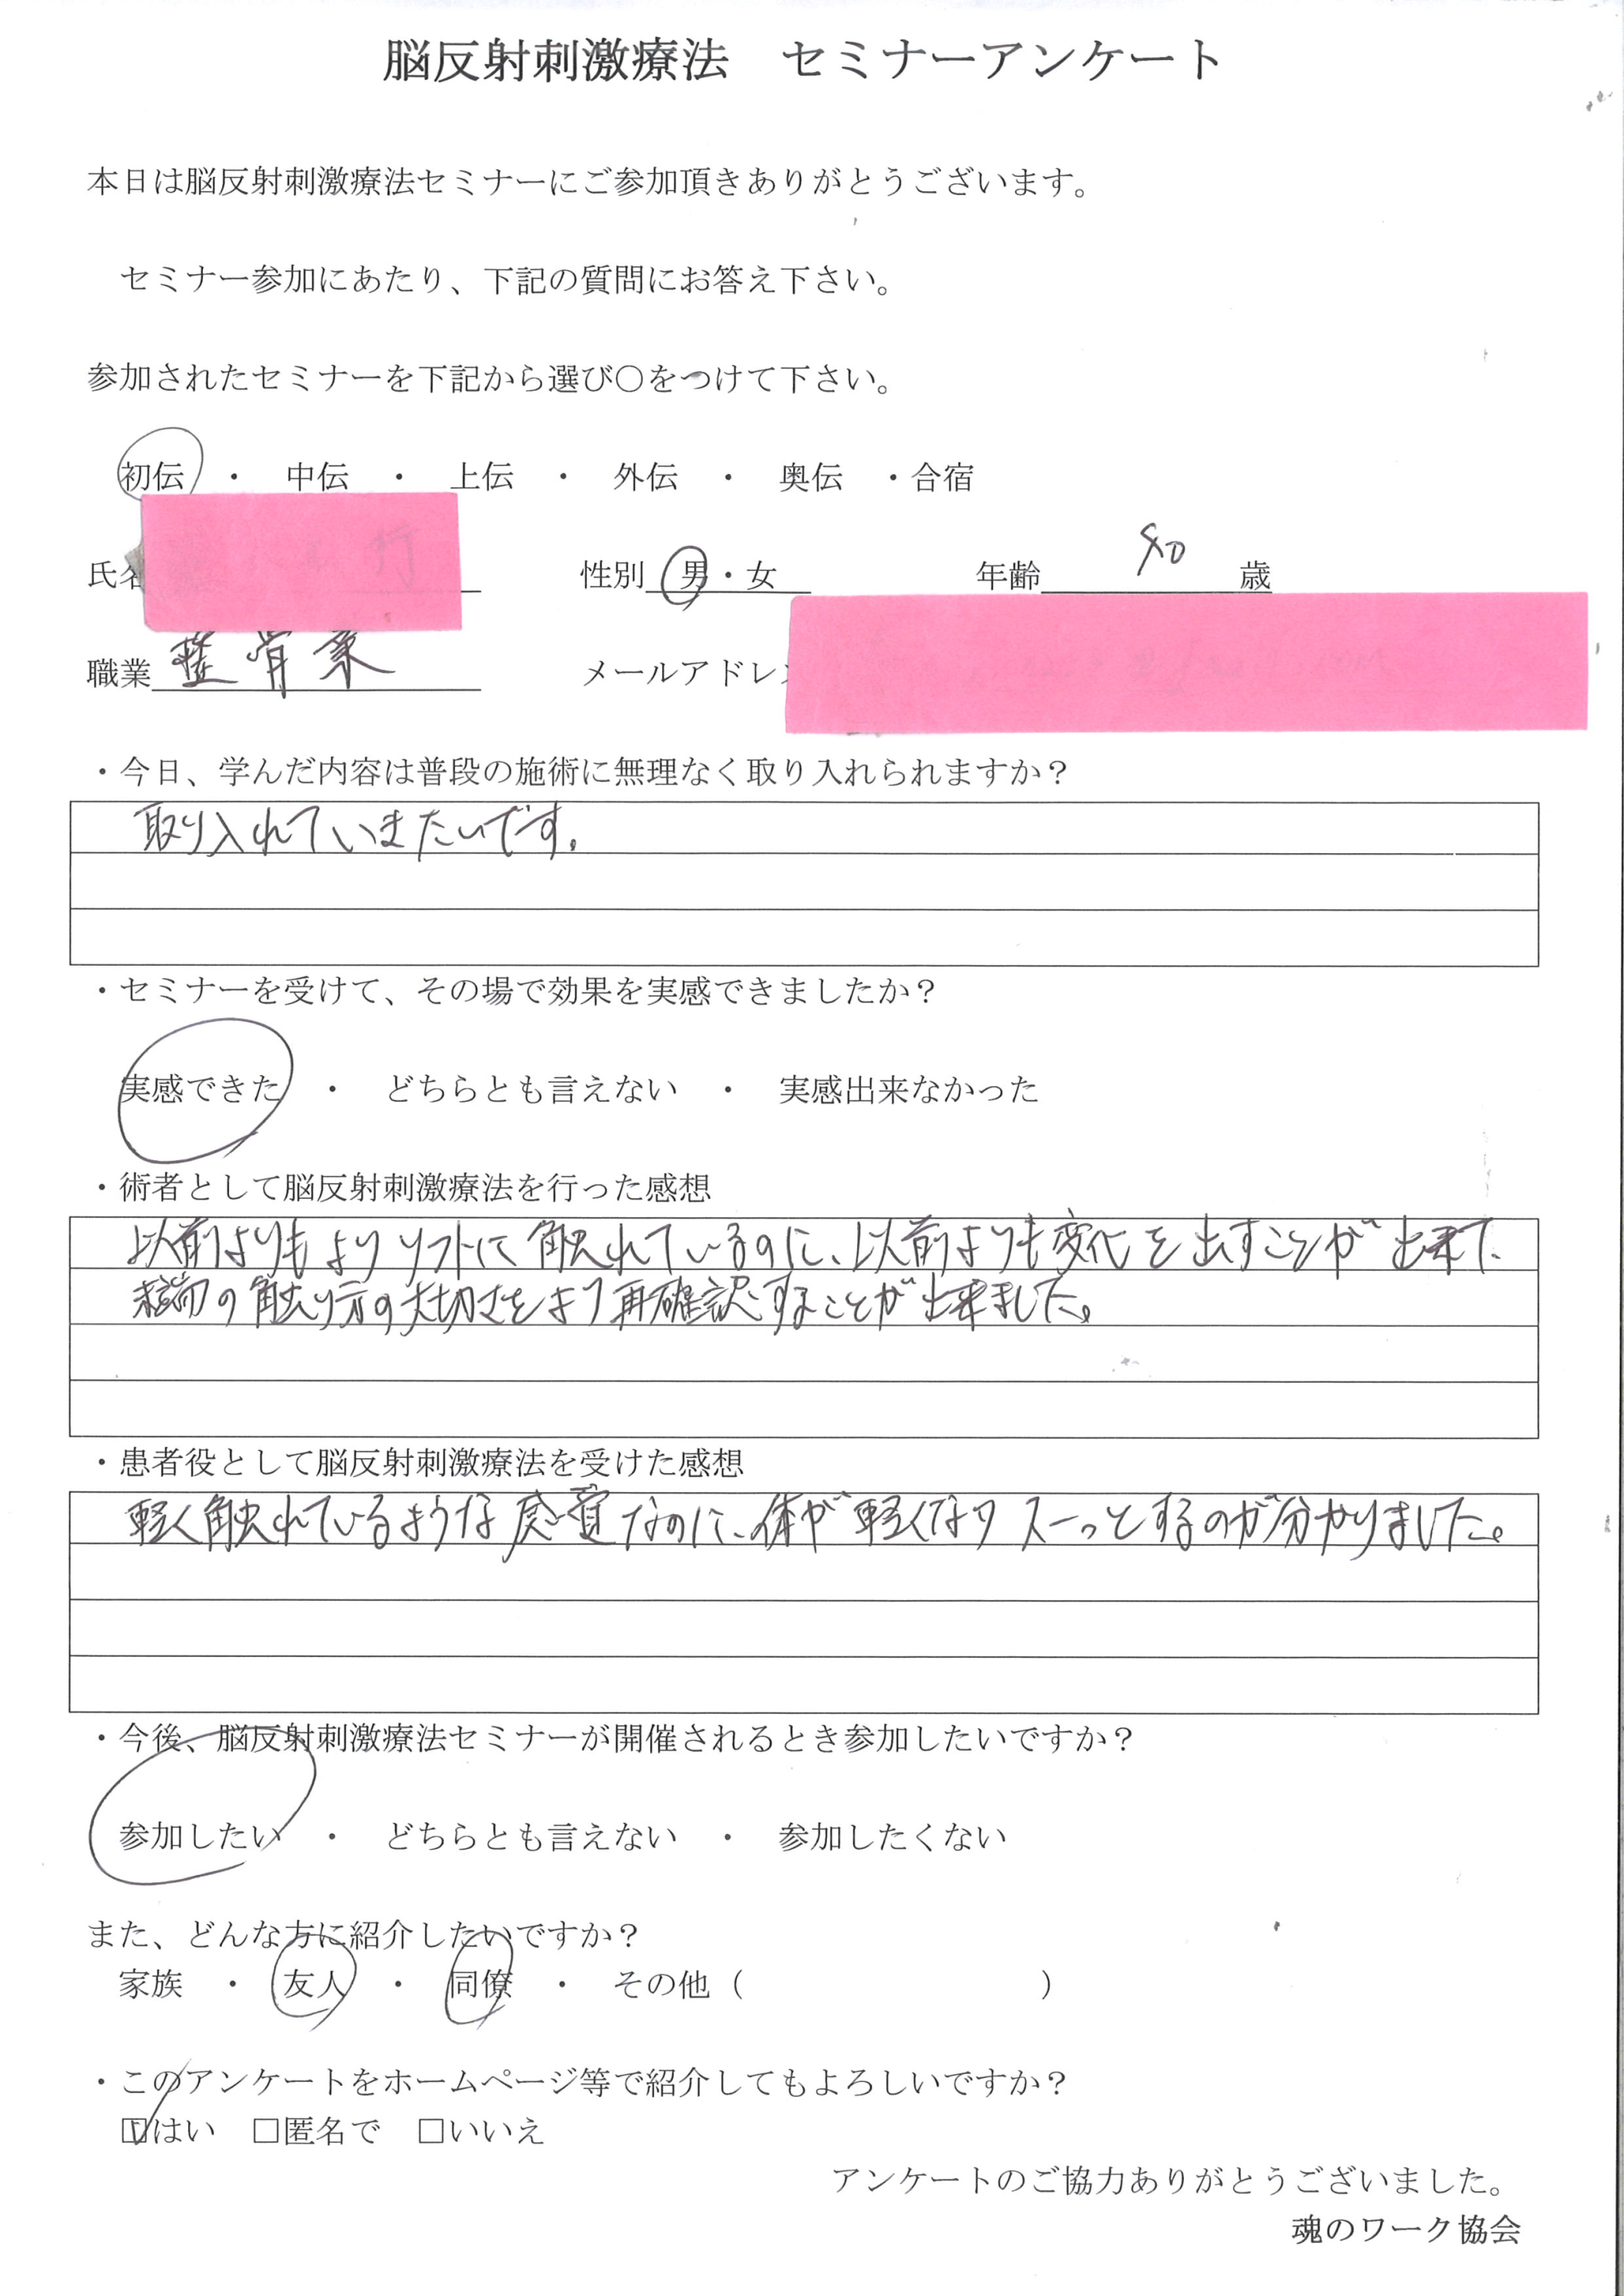 脳反射刺激療法　セミナーアンケート
本日は脳反射刺激療法セミナーにご参加頂きありがとうございます。
セミナー参加にあたり、下記の質問にお答え下さい。
参加されたセミナーを下記から選び〇をつけて下さい。
初伝　・　中伝　・　上伝　・　外伝　・　奥伝　・合宿
氏名　性別　男・女　年齢　40　歳
職業　整骨業　メールアドレス
・今日、学んだ内容は普段の施術に無理なく取り入れられますか？
取り入れていきたいです。
・セミナーを受けて、その場で効果を実感できましたか？
実感できた　・　どちらとも言えない　・　実感出来なかった
・術者として脳反射刺激療法を行った感想
以前よりもよりソフトに触れているのに、以前よりも変化を出すことが出来て、
末端の触り方の大切さをより再確認することが出来ました。
・患者役として脳反射刺激療法を受けた感想
軽く触れているような感覚なのに、体が軽くなりスーっとするのが分かりました。
・今後、脳反射刺激療法セミナーが開催されるとき参加したいですか？
参加したい　・　どちらとも言えない　・　参加したくない
また、どんな方に紹介したいですか？
家族　・　友人　・　同僚　・　その他（　　　　　　　　　）
・このアンケートをホームページ等で紹介してもよろしいですか？
☑はい　□匿名で　□いいえ
アンケートのご協力ありがとうございました。
魂のワーク協会